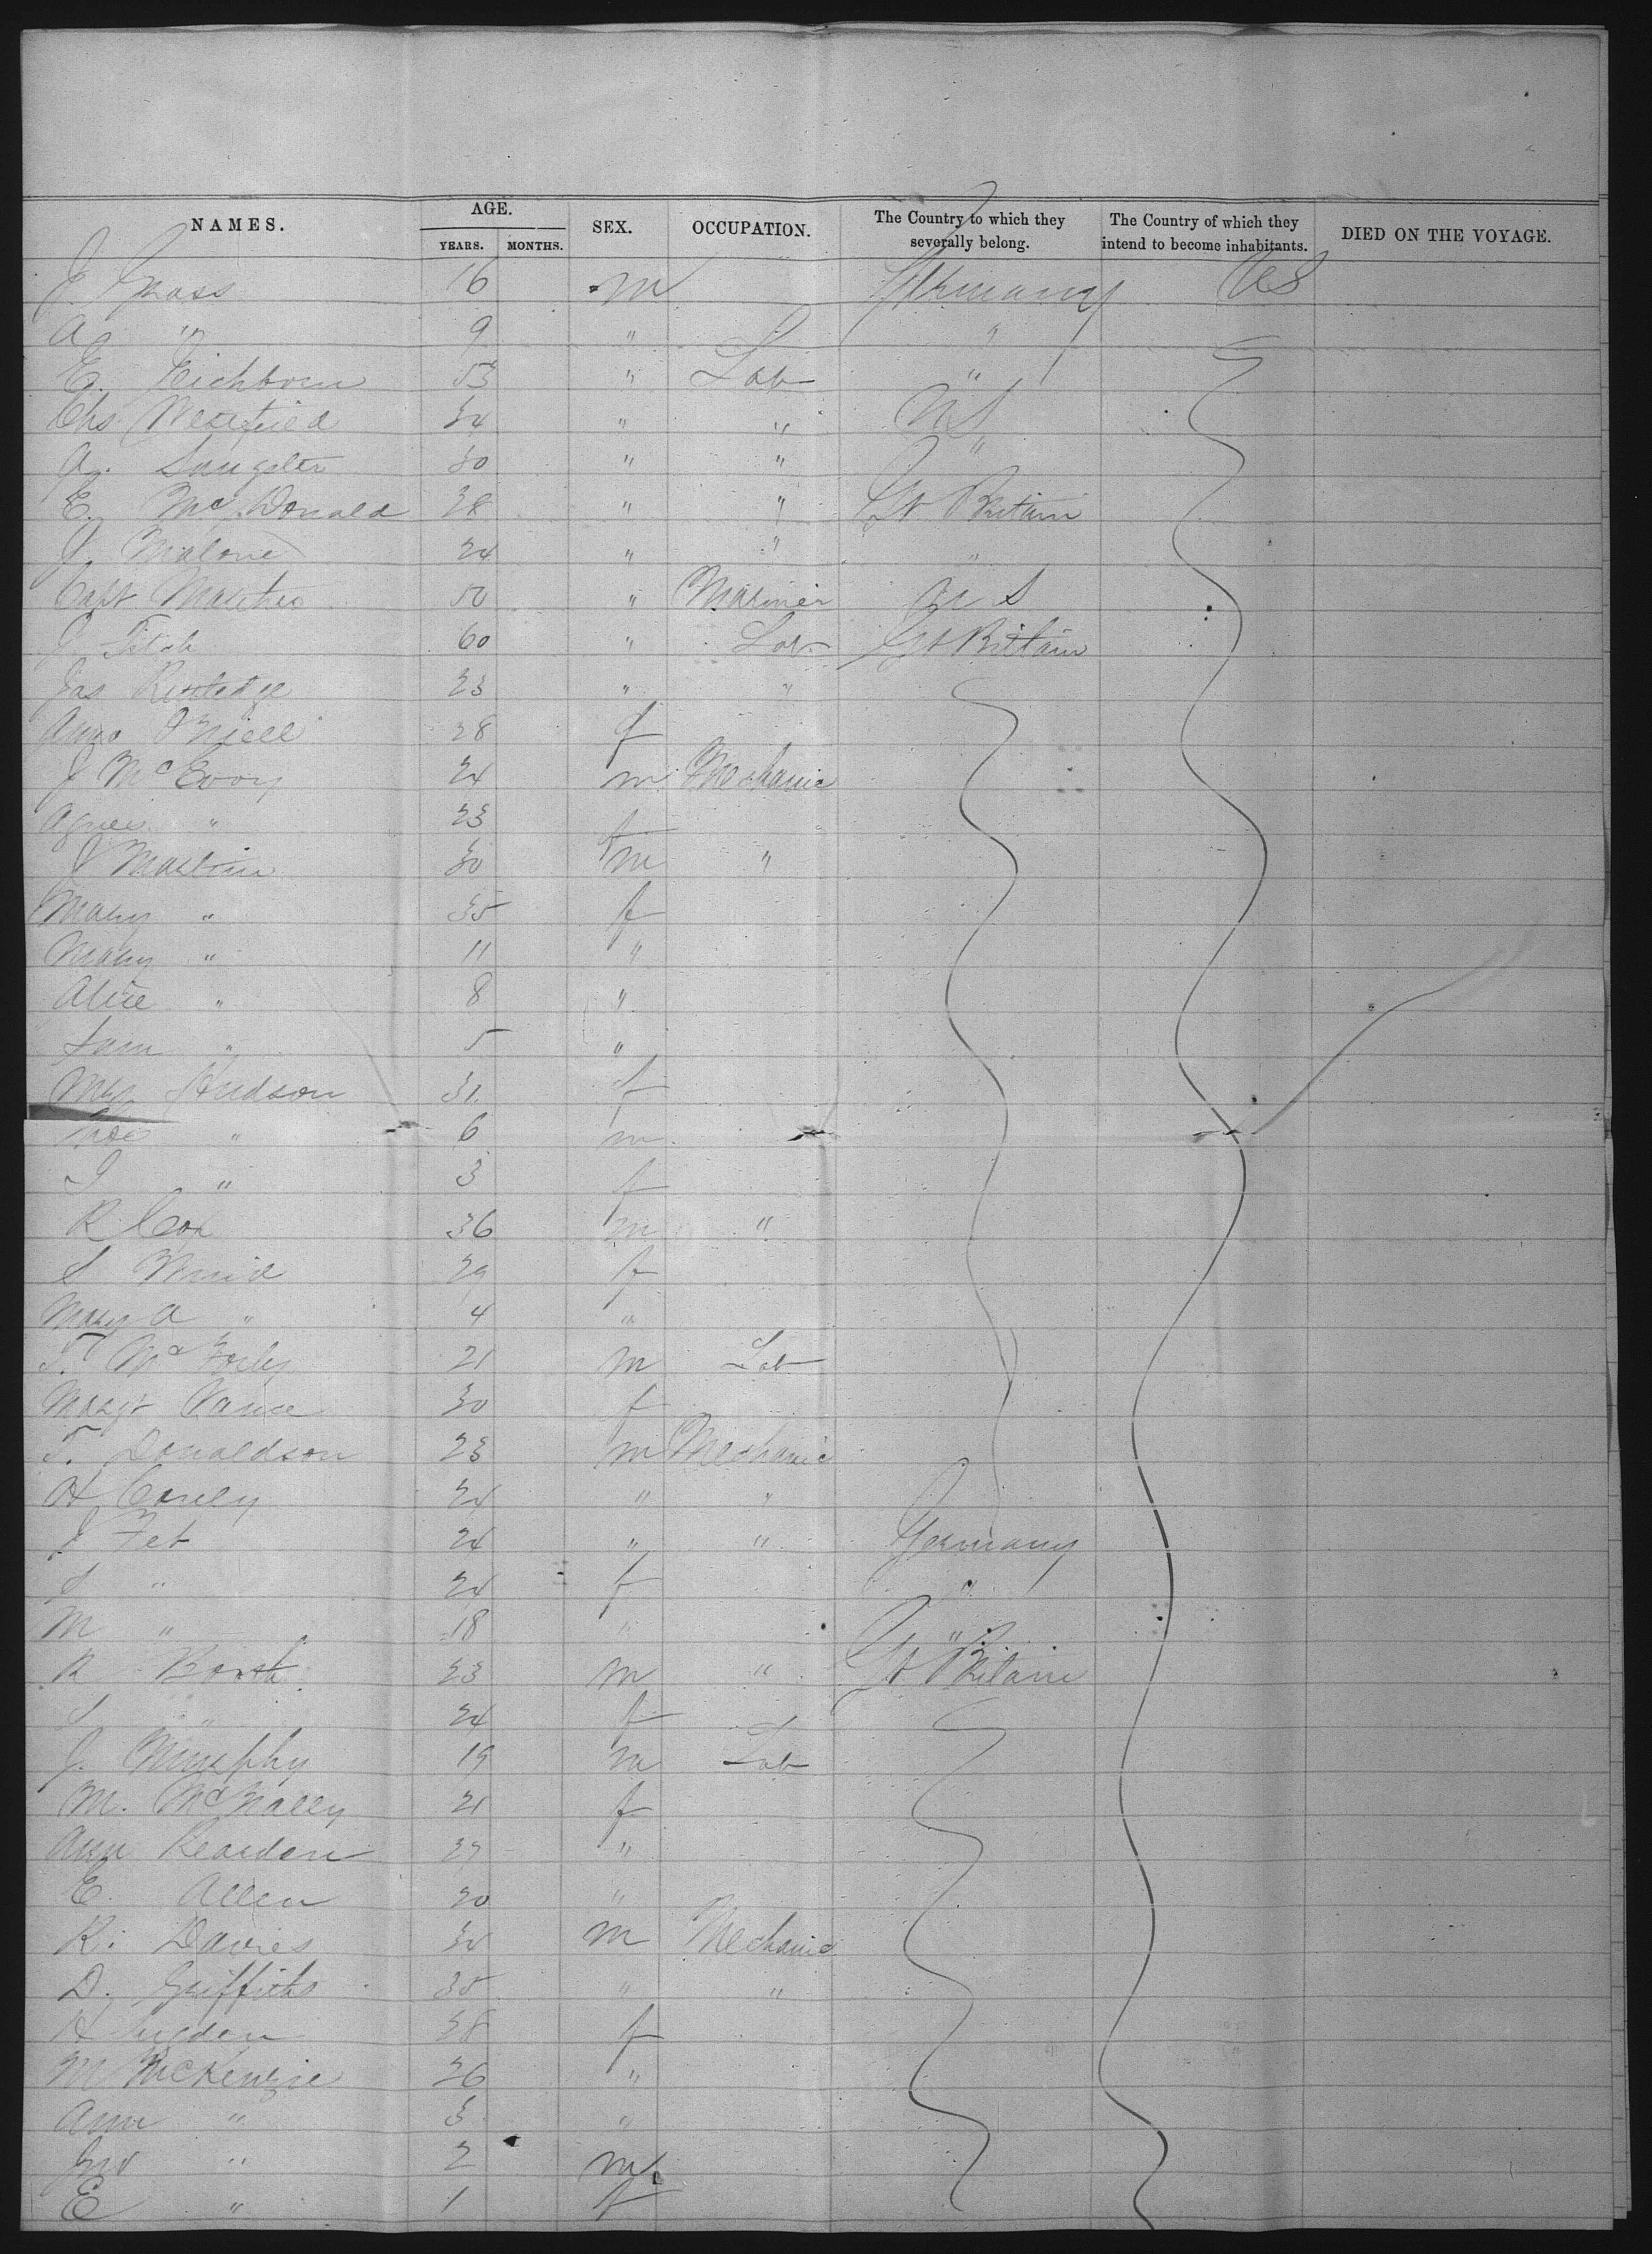 NAMES. AGE. YEARS. MONTHS. SEX. OCCUPATION. The Country to which they severally belong. The Country of which they intend to become inhabitants. DIED ON THE VOYAGE.
J. 16 m Germany US
A " 9 " "
E. Eichborn 53 " Lab "
Chs 34 " " US
A. Sangster 30 " " "
E. McDonald 28 " " Gt Britain
J. Malone 24 " " "
Capt 50 " Mariner U S
J Fitch 60 " Lab Gt Britain
Jas Rutledge 23 " "
Anna O'Niell 28 f
J McEvoy 24 m Mechanic
Agnes " 23 f
J Martin 30 m "
Mary " 35 f
Mary " 11 "
Alice " 8 "
Sam " 5 "
Mrs Hudson 31 f
" 6 m
" 3 f
R Cox 36 m "
S 29 f
Mary A " 4 "
T. 21 m Lab
Margt Vance 30 f
T. Donaldson 23 m Mechanic
H 24 " "
J Fet 24 " " Germany
S " 24 f "
M " 18 " "
R Booth 23 m " Gt Britain
S " 24 f
J. Murphy 19 m Lab
M. McNally 21 f
Ann Reardon 27 "
E. Allen 20 "
R. Davies 34 m Mechanic
D. Griffiths 35 " "
H 28 f
M McKenzie 26 "
Ann " 3 "
Jno " 2 m
E " 1 f